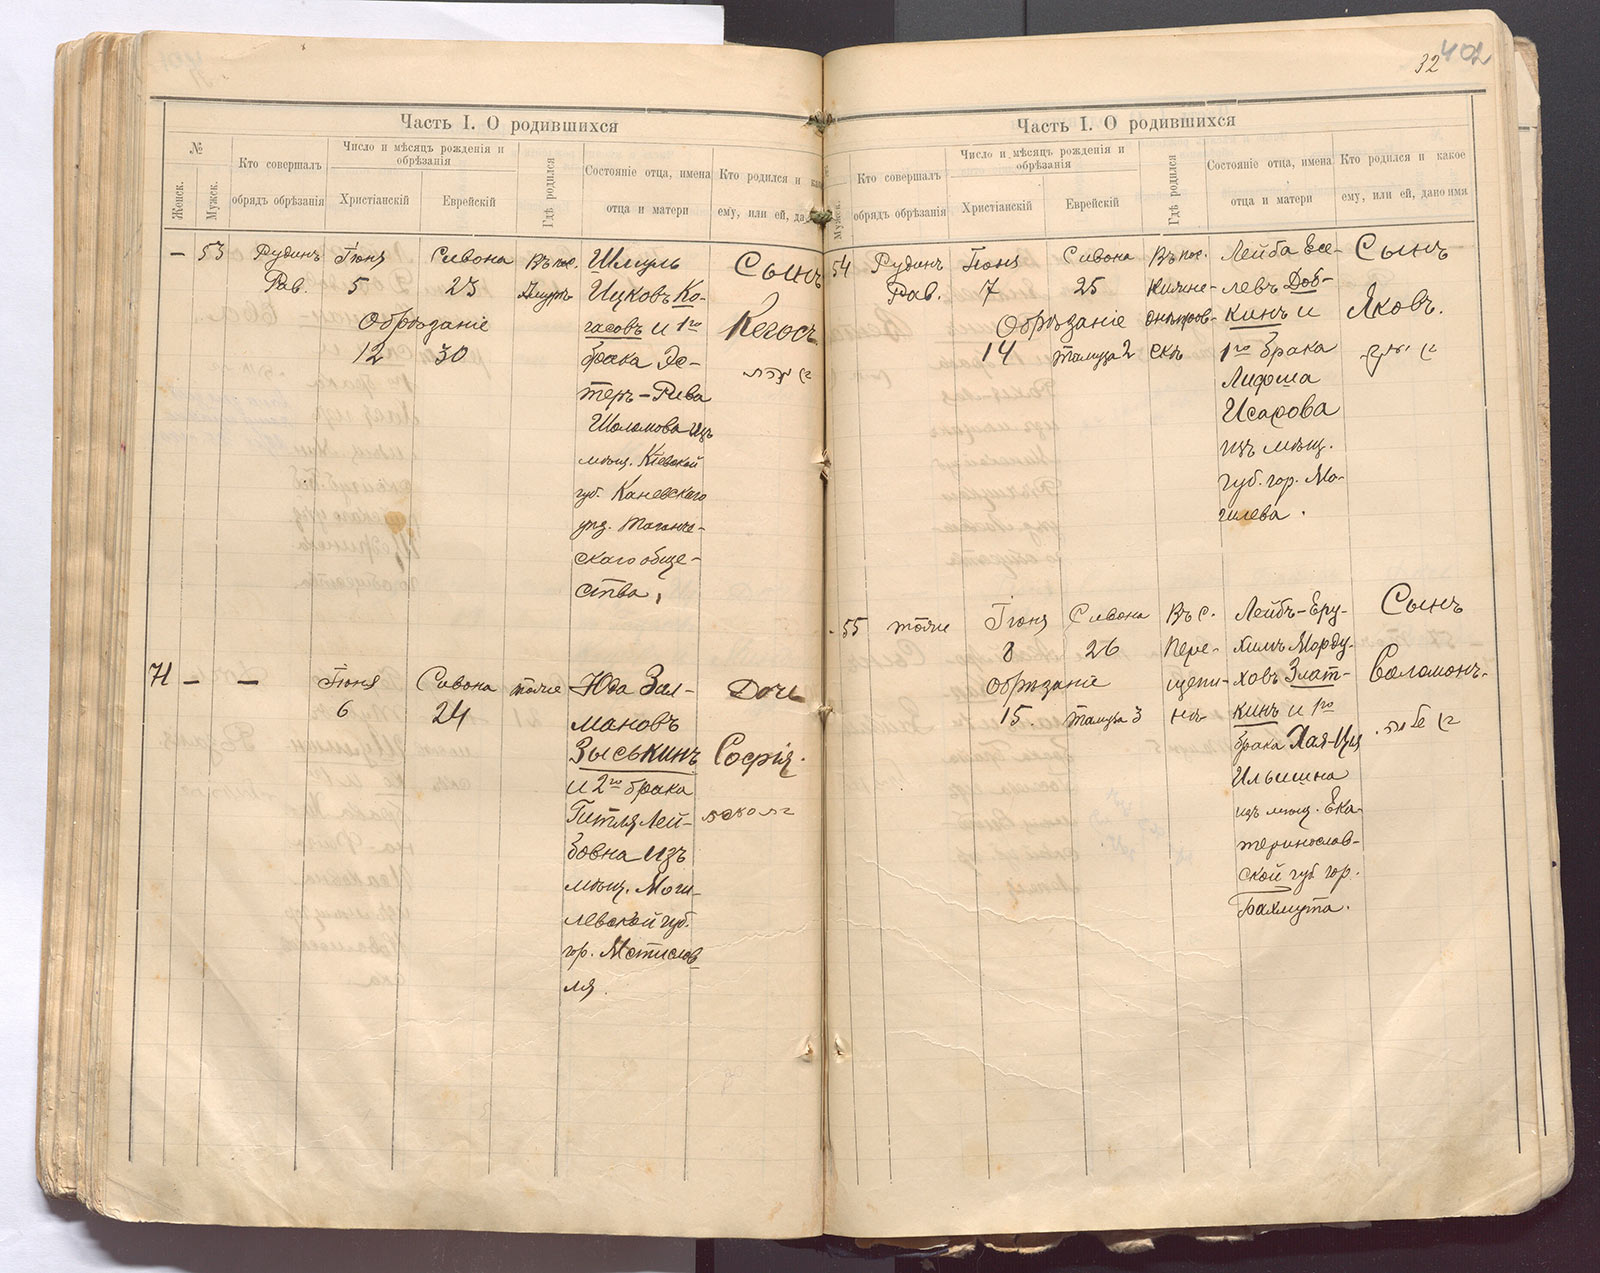 32 402
Часть I. О родившихся
№
Женск.
Мужск.
Кто совершалъ
обрядъ обрѣзанія
Число и мѣсяцъ рожденія и
обрѣзанія
Христіанскій
Еврейскій
Гдѣ родился
Состояніе отца, имена
отца и матери
Кто родился и
ему, или ей, да
– 53
Рудинъ
Рав.
Іюня
5
Сивона
23
Обрѣзаніе
12 30
Въ пос.
Шмуль
Ицковъ Ко-
гасовъ и 1го
брака Эс-
теръ-Рива
Шоломова изъ
мѣщ. Кіевской
губ. Каневскаго
уѣз. Таганче-
скаго обще-
ства.
Сынъ
71 – –
Іюня
6
Сивона
24
тоже
Юда Зал-
мановъ
Зыськинъ
и 2го брака
Гитля Лей-
бовна изъ
мѣщ. Моги-
левской губ.
гор. Мстислав
ля.
Дочь
Софія.
Часть I. О родившихся
Мужск.
Кто совершалъ
обрядъ обрѣзанія
Число и мѣсяцъ рожденія и
обрѣзанія
Христіанскій
Еврейскій
Гдѣ родился
Состояніе отца, имена
отца и матери
Кто родился и какое
ему, или ей, дано имя
54
Рудинъ
Рав.
Іюня
7
Сивона
25
Обрѣзаніе
14 Тамуза 2
Въ пос.
Нижне-
днѣпров-
скѣ
Лейба Есе-
левъ Доб-
кинъ и
1го брака
Лифша
Исарова
изъ мѣщ.
губ. гор. Мо-
гилева.
Сынъ
Яковъ.
55
тоже
Іюня
8
Сивона
26
Обрѣзаніе
15. Тамуза 3
Въ с.
Пере-
щепи-
нѣ
Лейбъ-Еру-
химъ Морду-
ховъ Злат-
кинъ и 1го
брака Хая-Цся
Ильишна
изъ мѣщ. Ека-
теринослав-
ской губ гор.
Бахмута.
Сынъ
Соломонъ.